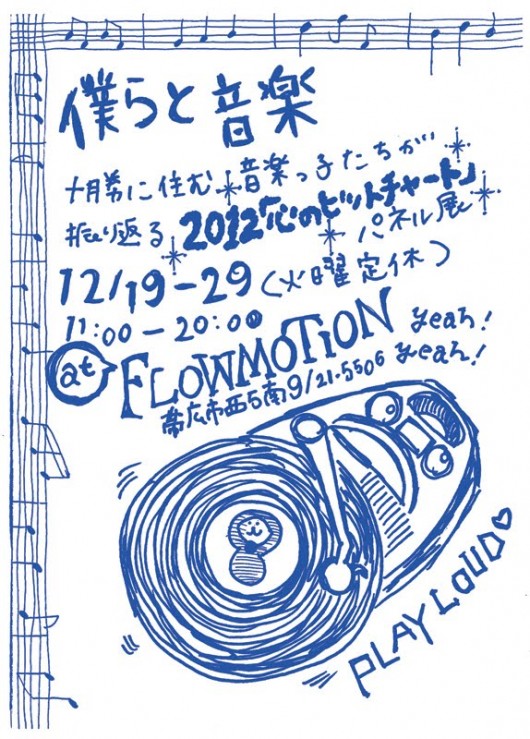 僕らと音楽
十勝に住む音楽っ子たちが
振り返る2012「心のヒットチャート」
パネル展
12/19-29(火曜定休)
11:00-20:00
at FLOWMOTION yeah!
yeah!
帯広市西5南9/21-5506
PLAY LOUD